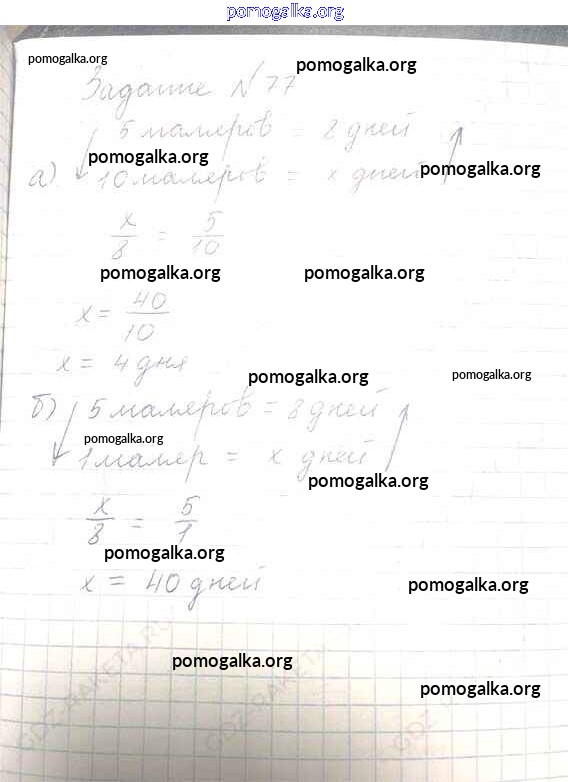 pomogalka.org
pomogalka.org
pomogalka.org
Задание № 77
5 маляров = 8 дней
pomogalka.org
pomogalka.org
а) 10 маляров = x дней
x/8 = 5/10
pomogalka.org
pomogalka.org
x = 40/10
x = 4 дня
pomogalka.org
pomogalka.org
б) 5 маляров = 8 дней
pomogalka.org
1 маляр = x дней
pomogalka.org
x/8 = 5/1
pomogalka.org
x = 40 дней
pomogalka.org
pomogalka.org
pomogalka.org